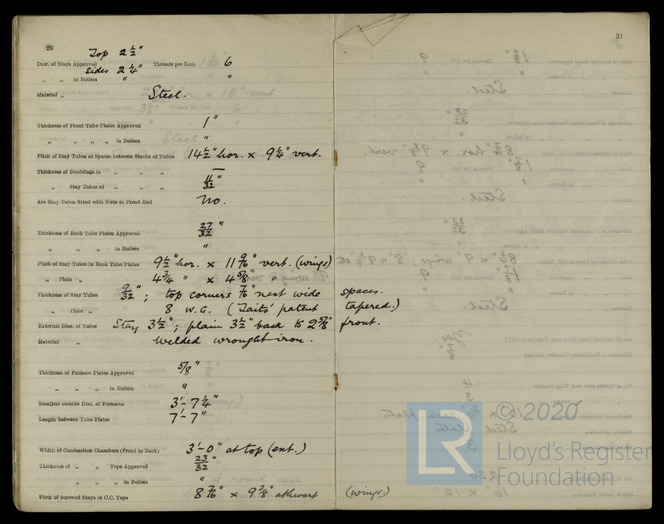 20
21
Top 2 1/2"
Diar. of Stays Approved Sides 2 1/4" Threads per Inch 6
" " in Boilers " "
Material " Steel.
Thickness of Front Tube Plates Approved 1"
" " " " in Boilers "
Pitch of Stay Tubes at Spaces between Stacks of Tubes 14 1/2" hor. x 9 1/4" vert.
Thickness of Doublings in " " " —
" Stay Tubes at " " " 11/32"
Are Stay Tubes fitted with Nuts at Front End No.
Thickness of Back Tube Plates Approved 27/32"
" " " " in Boilers "
Pitch of Stay Tubes in Back Tube Plates 9 1/2" hor. x 11 9/16" vert. (wings)
" Plain " 4 3/4 " x 4 5/8 " "
Thickness of Stay Tubes 9/32"; top corners 7/16" next wide spaces.
" Plain " 8 W.G. (Taits' patent tapered.)
External Diar. of Tubes Stay 3 1/2"; plain 3 1/2" back to 2 5/8" front.
Material " Welded wrought iron.
Thickness of Furnace Plates Approved 5/8"
" " " in Boilers "
Smallest outside Diar. of Furnaces 3'-7 1/4"
Length between Tube Plates 7'-7"
Width of Combustion Chambers (Front to Back) 3'-0" at top (ent.)
Thickness of " " Tops Approved 23/32"
" " " " in Boilers "
Pitch of Screwed Stays in C.C. Tops 8 7/16" x 9 3/8" athwart (wings)
© 2020
LR
Lloyd's Register
Foundation